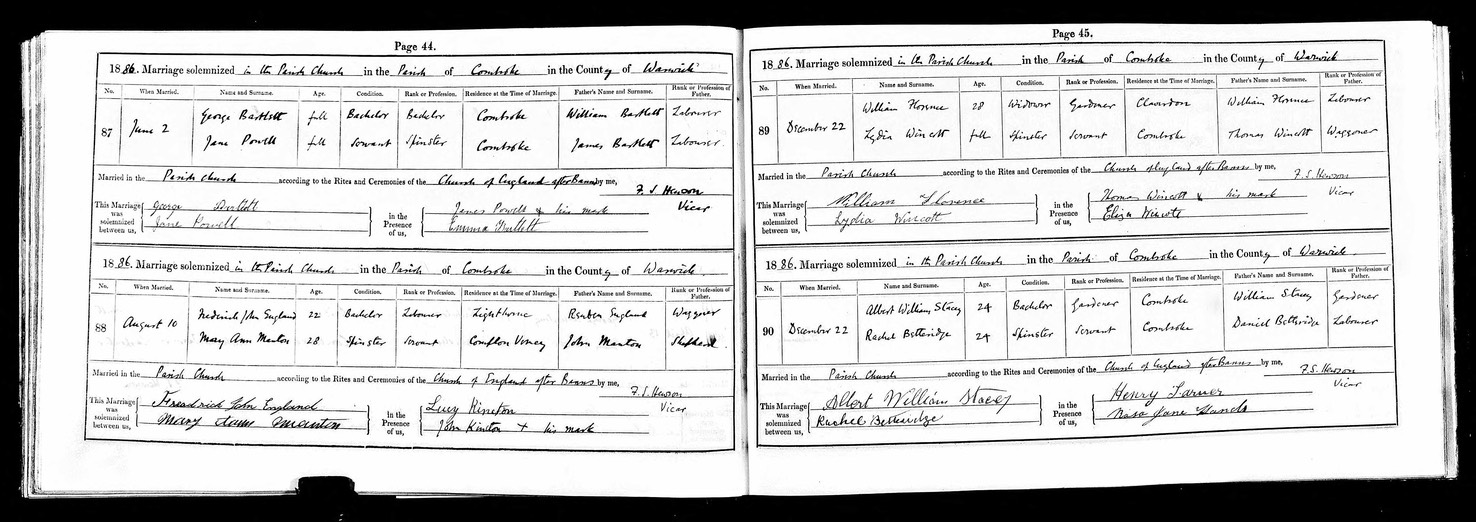 Page 44.
1886. Marriage solemnized in the Parish Church in the Parish of Combroke in the County of Warwick
No. When Married. Name and Surname. Age. Condition. Rank or Profession. Residence at the Time of Marriage. Father's Name and Surname. Rank or Profession of Father.
87 June 2 George Bartlett full Bachelor Bachelor Combroke William Bartlett Labourer
Jane Powell full Servant Spinster Combroke James Bartlett Labourer
Married in the Parish Church according to the Rites and Ceremonies of the Church of England after Banns by me,
F. S. Hewson
Vicar
This Marriage was solemnized between us, George Bartlett
Jane Powell
in the Presence of us, James Powell x his mark
Emma
1886. Marriage solemnized in the Parish Church in the Parish of Combroke in the County of Warwick.
No. When Married. Name and Surname. Age. Condition. Rank or Profession. Residence at the Time of Marriage. Father's Name and Surname. Rank or Profession of Father.
88 August 10 Frederick John England 22 Bachelor Labourer Lighthorne Reuben England Waggoner
Mary Ann Manton 28 Spinster Servant Compton Verney John Manton Shepherd
Married in the Parish Church according to the Rites and Ceremonies of the Church of England after Banns by me,
F. S. Hewson
Vicar
This Marriage was solemnized between us, Freadrick John England
Mary Manton
in the Presence of us, Lucy Kineton
John Kineton + his mark
Page 45.
1886. Marriage solemnized in the Parish Church in the Parish of Combroke in the County of Warwick
No. When Married. Name and Surname. Age. Condition. Rank or Profession. Residence at the Time of Marriage. Father's Name and Surname. Rank or Profession of Father.
89 December 22 William Florence 28 Widower Gardener Claverdon William Florence Labourer
Lydia Wincott full Spinster Servant Combroke Thomas Wincott Waggoner
Married in the Parish Church according to the Rites and Ceremonies of the Church of England after Banns by me,
F. S. Hewson
Vicar
This Marriage was solemnized between us, William Florence
Lydia Wincott
in the Presence of us, Thomas Wincott x his mark
Eliza Wincott
1886. Marriage solemnized in the Parish Church in the Parish of Combroke in the County of Warwick.
No. When Married. Name and Surname. Age. Condition. Rank or Profession. Residence at the Time of Marriage. Father's Name and Surname. Rank or Profession of Father.
90 December 22 Albert William Stacey 24 Bachelor Gardener Combroke William Stacey Gardener
Rachel Betteridge 24 Spinster Servant Combroke Daniel Betteridge Labourer
Married in the Parish Church according to the Rites and Ceremonies of the Church of England after Banns by me,
F. S. Hewson
Vicar
This Marriage was solemnized between us, Albert William Stacey
Rachel Betteridge
in the Presence of us, Henry
Jane Hands